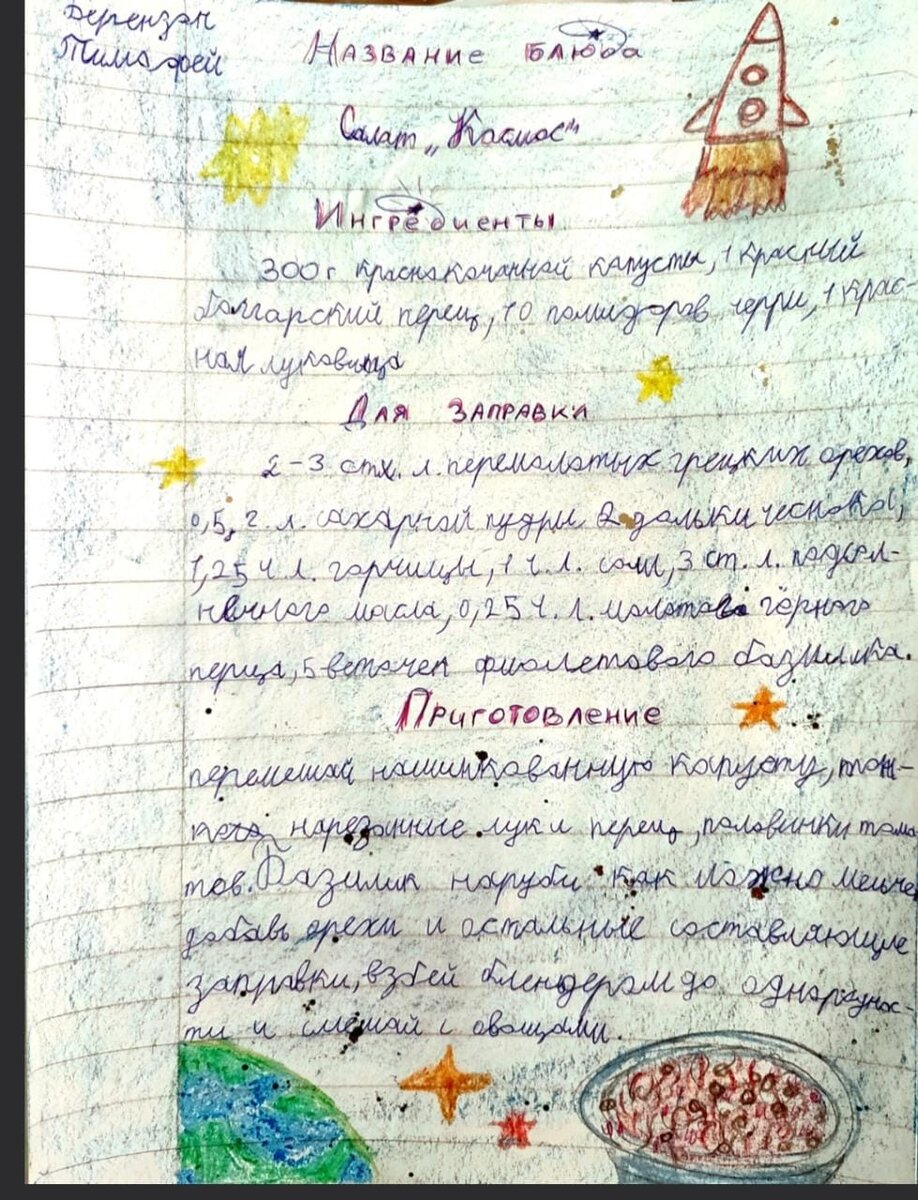 Березан
Тимафей
Название блюда
Салат „Космос"
Ингредиенты
300 г краснокочанной капусты, 1 красный
болгарский перец, 10 помидоров черри, 1 крас-
ная луковица
Для заправки
2-3 стх. л. перемолотых грецких орехов,
0,5 ч. л. сахарной пудры 2 дольки чеснока,
1,25 ч.л. горчицы, 1 ч.л. соли, 3 ст. л. подсол-
нечного масла, 0,25 ч. л. молотого чёрного
перца, 5 веточек фиолетового базилика.
Приготовление
перемешай нашинкованную капусту, тон-
нарезанные лук и перец, половинки тома
тов. Базилик наруби как можно мельче
добавь орехи и остальные составляющие
заправки, взбей блендером до однороднос-
ти и смешай с овощами.